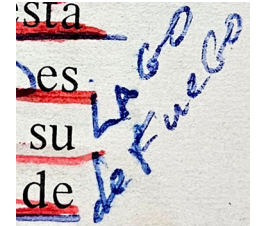 esta
es
su
de
LAGO
de Fuego